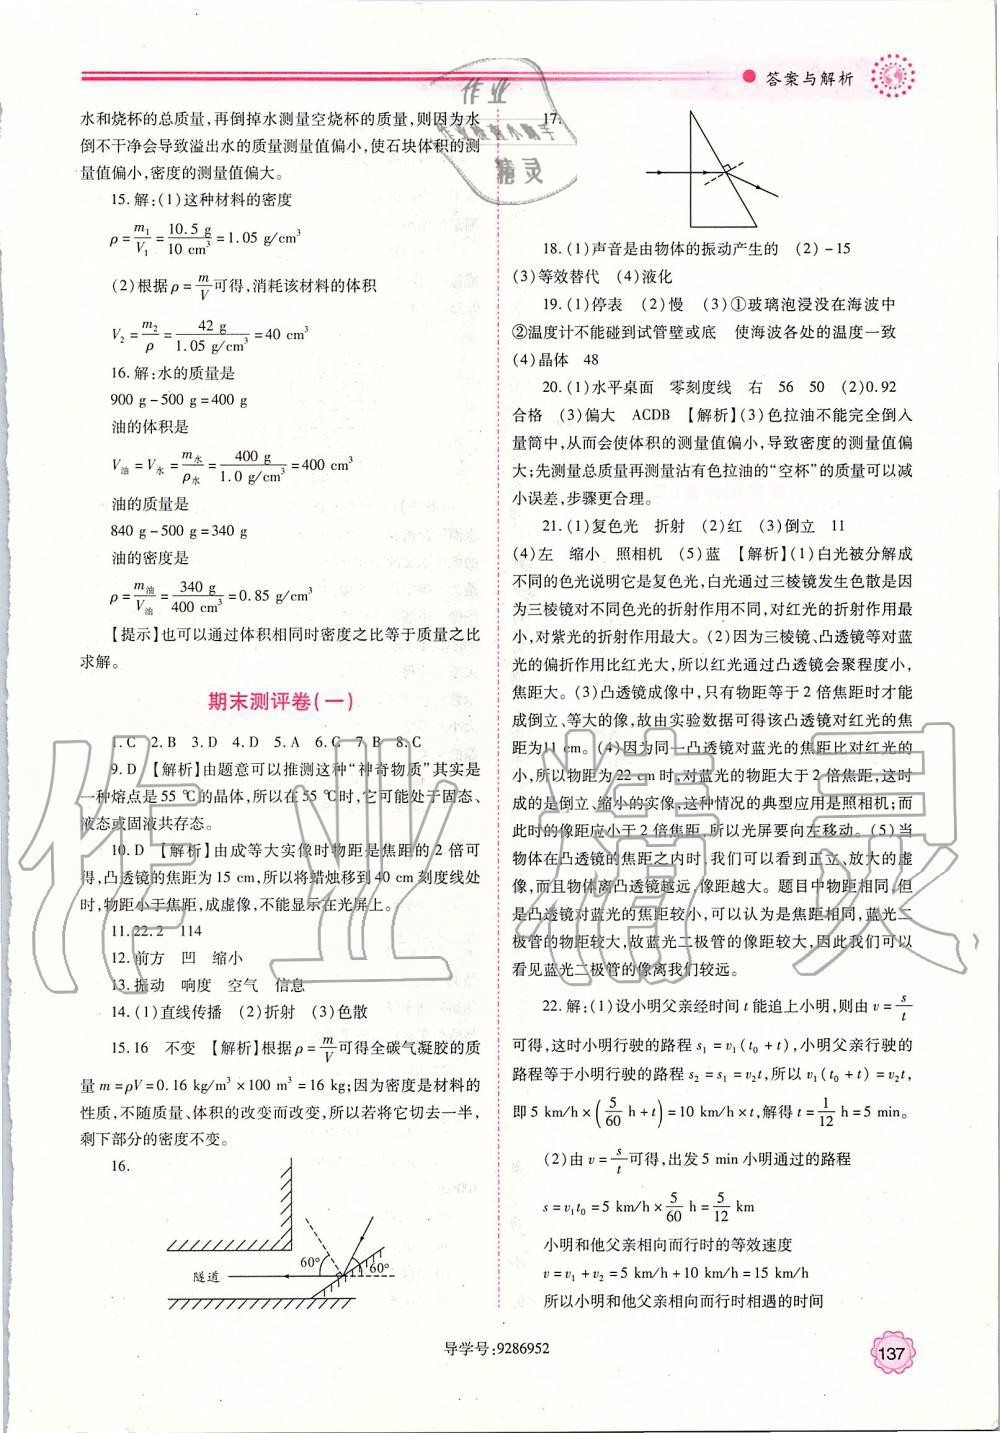 答案与解析
水和烧杯的总质量,再倒掉水测量空烧杯的质量,则因为水
倒不干净会导致溢出水的质量测量值偏小,使石块体积的测
量值偏小,密度的测量值偏大。
15.解:(1)这种材料的密度
ρ=m₁/V₁=10.5 g/10 cm³=1.05 g/cm³
(2)根据ρ=m/V可得,消耗该材料的体积
V₂=m₂/ρ=42 g/1.05 g/cm³=40 cm³
16.解:水的质量是
900 g-500 g=400 g
油的体积是
V油=V水=m水/ρ水=400 g/1.0 g/cm³=400 cm³
油的质量是
840 g-500 g=340 g
油的密度是
ρ=m油/V油=340 g/400 cm³=0.85 g/cm³
【提示】也可以通过体积相同时密度之比等于质量之比
求解。
期末测评卷(一)
1.C 2.B 3.D 4.D 5.A 6.C 7.B 8.C
9.D 【解析】由题意可以推测这种“神奇物质”其实是
一种熔点是55 ℃的晶体,所以在55 ℃时,它可能处于固态、
液态或固液共存态。
10.D 【解析】由成等大实像时物距是焦距的2倍可
得,凸透镜的焦距为15 cm,所以将蜡烛移到40 cm刻度线处
时,物距小于焦距,成虚像,不能显示在光屏上。
11.22.2 114
12.前方 凹 缩小
13.振动 响度 空气 信息
14.(1)直线传播 (2)折射 (3)色散
15.16 不变 【解析】根据ρ=m/V可得全碳气凝胶的质
量m=ρV=0.16 kg/m³×100 m³=16 kg;因为密度是材料的
性质,不随质量、体积的改变而改变,所以若将它切去一半,
剩下部分的密度不变。
16.
60°
60°
隧道
17.
18.(1)声音是由物体的振动产生的 (2)-15
(3)等效替代 (4)液化
19.(1)停表 (2)慢 (3)①玻璃泡浸没在海波中
②温度计不能碰到试管壁或底 使海波各处的温度一致
(4)晶体 48
20.(1)水平桌面 零刻度线 右 56 50 (2)0.92
合格 (3)偏大 ACDB 【解析】(3)色拉油不能完全倒入
量筒中,从而会使体积的测量值偏小,导致密度的测量值偏
大;先测量总质量再测量沾有色拉油的“空杯”的质量可以减
小误差,步骤更合理。
21.(1)复色光 折射 (2)红 (3)倒立 11
(4)左 缩小 照相机 (5)蓝 【解析】(1)白光被分解成
不同的色光说明它是复色光,白光通过三棱镜发生色散是因
为三棱镜对不同色光的折射作用不同,对红光的折射作用最
小,对紫光的折射作用最大。(2)因为三棱镜、凸透镜等对蓝
光的偏折作用比红光大,所以红光通过凸透镜会聚程度小,
焦距大。(3)凸透镜成像中,只有物距等于2倍焦距时才能
成倒立、等大的像,故由实验数据可得该凸透镜对红光的焦
距为11 cm。(4)因为同一凸透镜对蓝光的焦距比对红光的
小,所以物距为22 cm时,对蓝光的物距大于2倍焦距,这时
成的是倒立、缩小的实像,这种情况的典型应用是照相机;而
此时的像距应小于2倍焦距,所以光屏要向左移动。(5)当
物体在凸透镜的焦距之内时,我们可以看到正立、放大的虚
像,而且物体离凸透镜越远,像距越大。题目中物距相同,但
是凸透镜对蓝光的焦距较小,可以认为是焦距相同,蓝光二
极管的物距较大,故蓝光二极管的像距较大,因此我们可以
看见蓝光二极管的像离我们较远。
22.解:(1)设小明父亲经时间t能追上小明,则由v=s/t
可得,这时小明行驶的路程s₁=v₁(t₀+t),小明父亲行驶的
路程等于小明行驶的路程s₂=s₁=v₂t,所以v₁(t₀+t)=v₂t,
即5 km/h×(5/60 h+t)=10 km/h×t,解得t=1/12 h=5 min。
(2)由v=s/t可得,出发5 min小明通过的路程
s=v₁t₀=5 km/h×5/60 h=5/12 km
小明和他父亲相向而行时的等效速度
v=v₁+v₂=5 km/h+10 km/h=15 km/h
所以小明和他父亲相向而行时相遇的时间
导学号:9286952
137
作业精灵